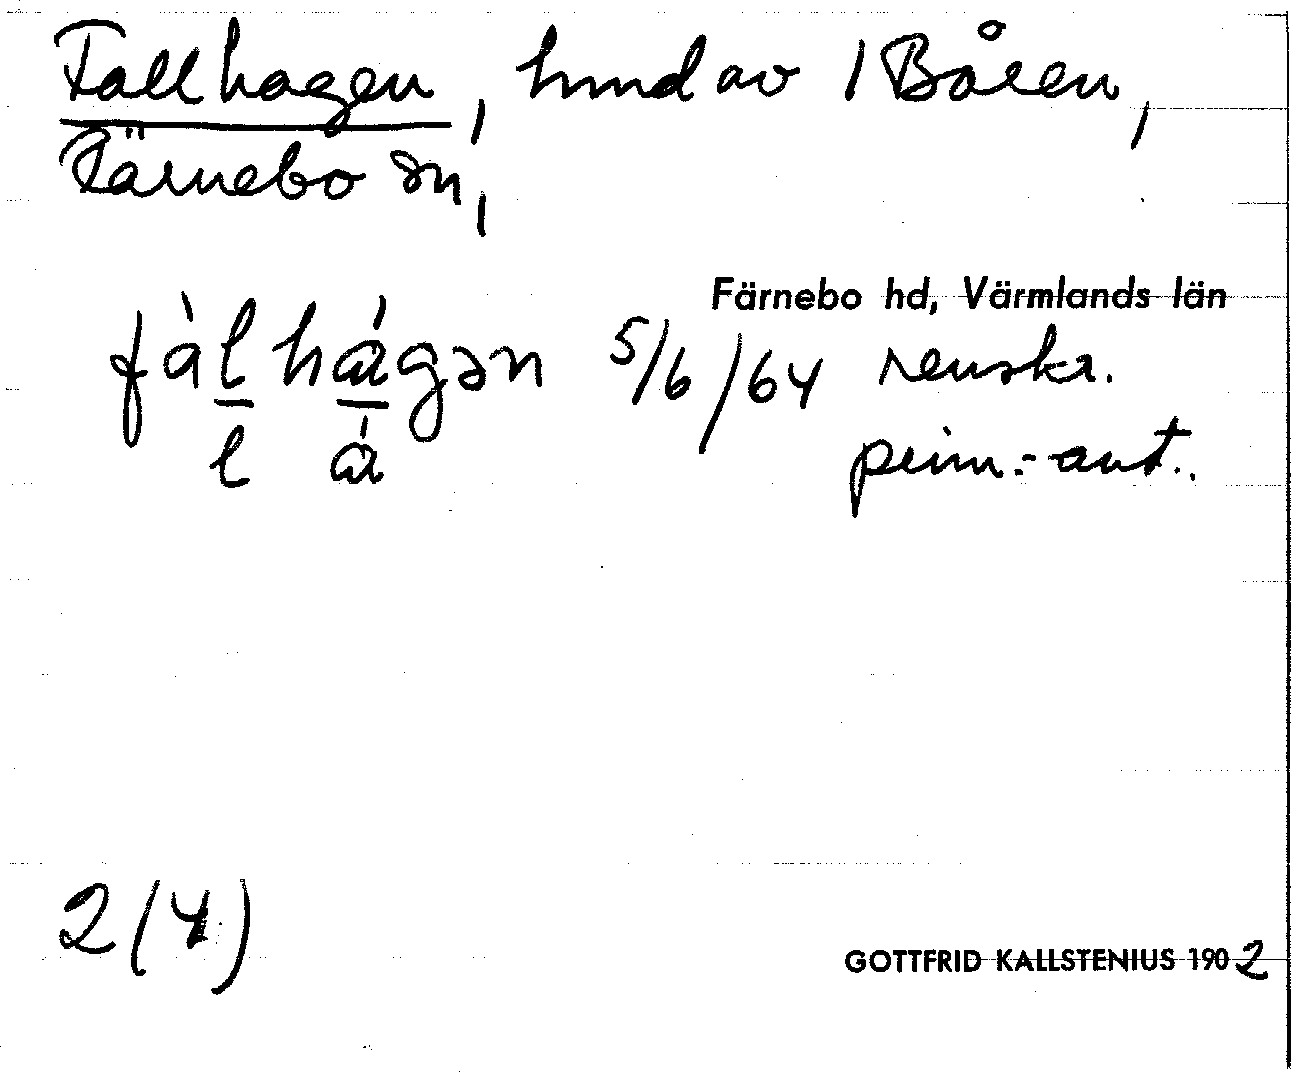 Fallhagen, hmd av 1 Båsen,
Färnebo sn,
Färnebo hd, Värmlands län
fàlhágən 5/6/64 renskr.
l á prim.-ant..
2(4)
GOTTFRID KALLSTENIUS 1902